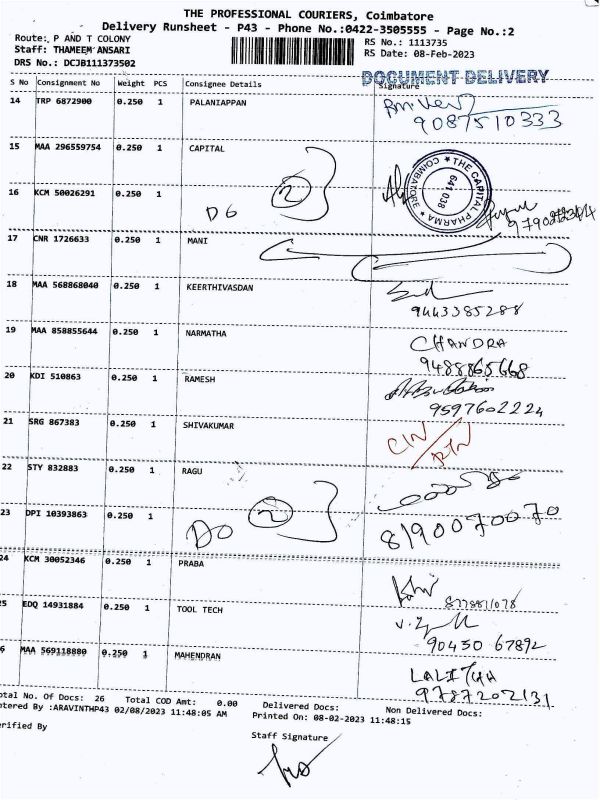 THE PROFESSIONAL COURIERS, Coimbatore
Delivery Runsheet - P43 - Phone No.:0422-3505555 - Page No.:2
Route: P AND T COLONY
Staff: THAMEEM ANSARI
DRS No.: DCJB111373502
RS No.: 1113735
RS Date: 08-Feb-2023
DOCUMENT DELIVERY
S No Consignment No Weight PCS Consignee Details Signature
14 TRP 6872900 0.250 1 PALANIAPPAN
9087510333
15 MAA 296559754 0.250 1 CAPITAL
THE CAPITAL PHARMA ★ COIMBATORE ★ 641 038
2
16 KCM 50026291 0.250 1
DO
17 CNR 1726633 0.250 1 MANI
18 MAA 568868040 0.250 1 KEERTHIVASDAN
9443385288
19 MAA 858855644 0.250 1 NARMATHA
CHANDRA
9488865668
20 KDI 510863 0.250 1 RAMESH
9597602224
21 SRG 867383 0.250 1 SHIVAKUMAR
CIN/RTN
22 STY 832883 0.250 1 RAGU
2
23 DPI 10393863 0.250 1
DO
8190070070
24 KCM 30052346 0.250 1 PRABA
25 EDQ 14931884 0.250 1 TOOL TECH
90450 67892
6 MAA 569118880 0.250 1 MAHENDRAN
LALITHA
9787202131
otal No. Of Docs: 26 Total COD Amt: 0.00 Delivered Docs: Non Delivered Docs:
ntered By :ARAVINTHP43 02/08/2023 11:48:05 AM Printed On: 08-02-2023 11:48:15
erified By Staff Signature